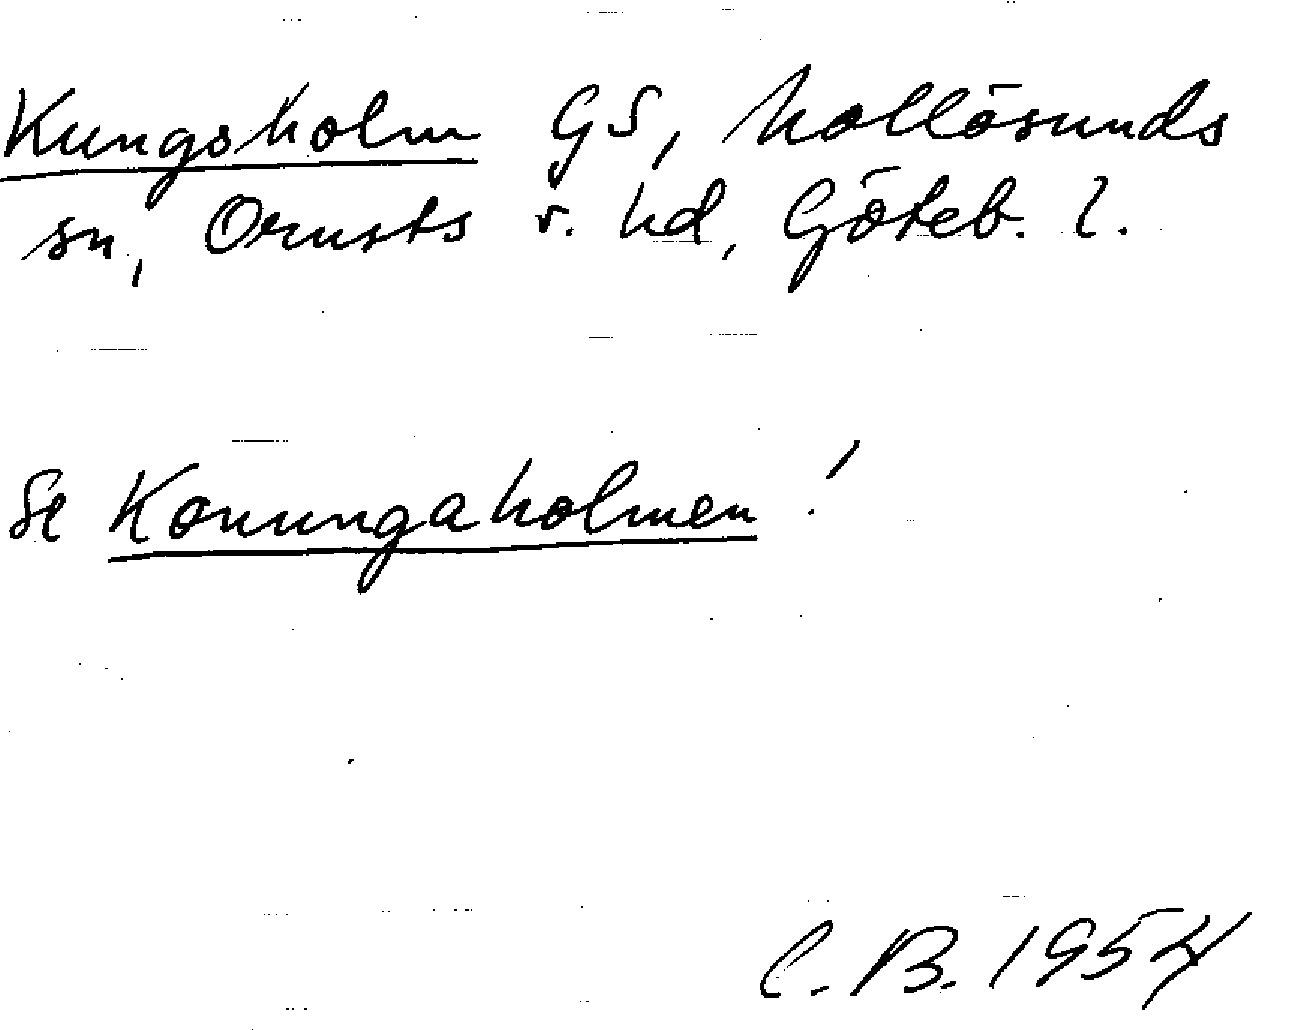 Kungsholm GS, Mollösunds
sn, Orusts v. hd, Göteb. l.
Se Konungaholmen!
C. B. 1954